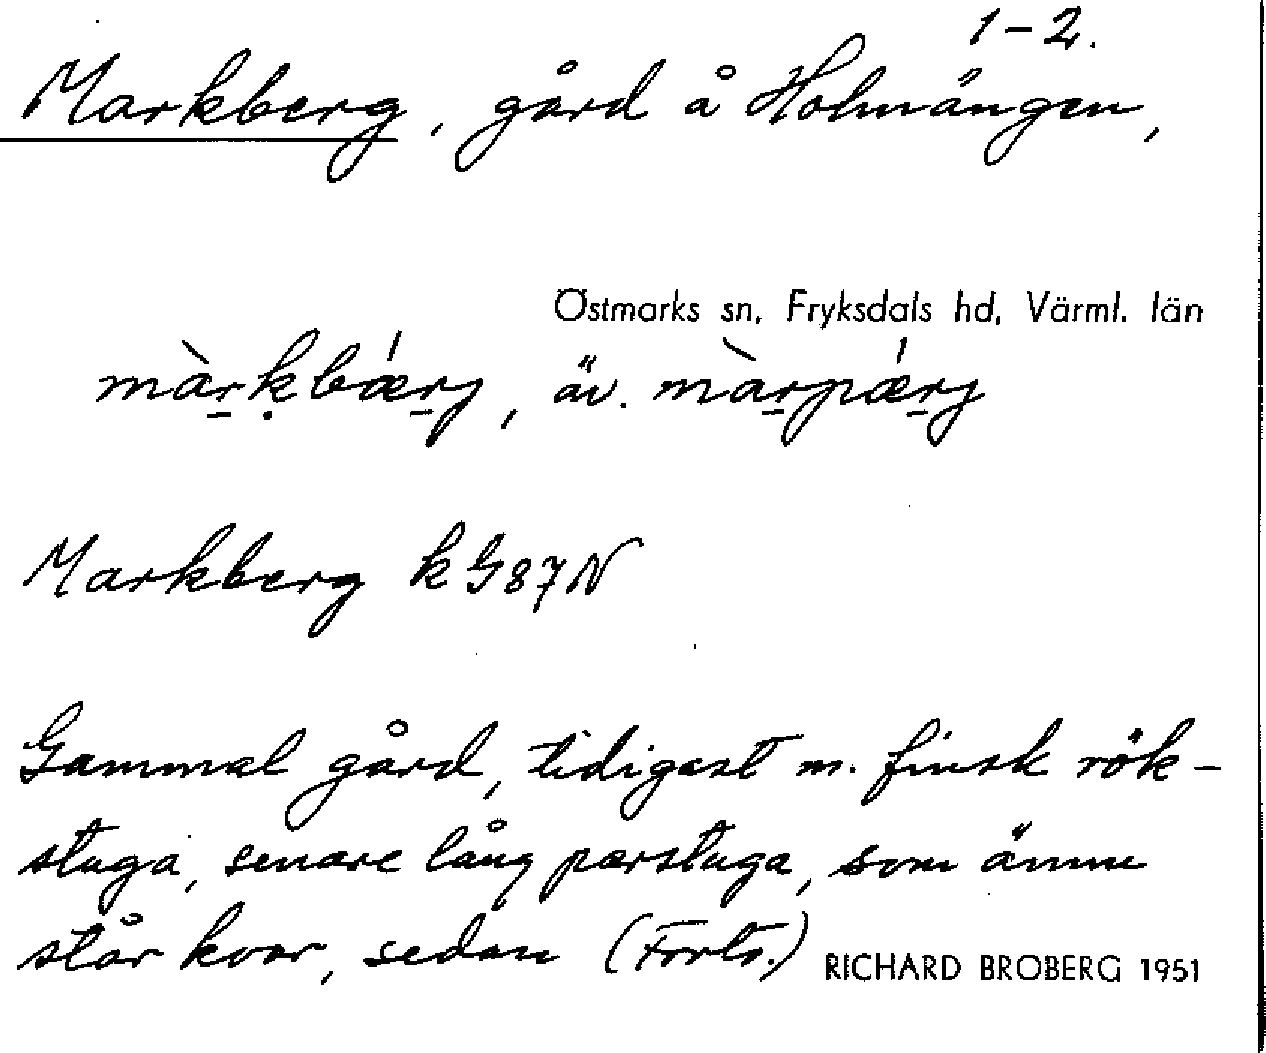 1-2.
Markberg, gård å Holmängen,
Östmarks sn, Fryksdals hd, Värml. län
màrkbǽrj, äv. màrpǽrj
Markberg k G87N
Gammal gård, tidigast m. finsk rök-
stuga, senare lång parstuga, som ännu
står kvar, sedan (Forts.)
RICHARD BROBERG 1951